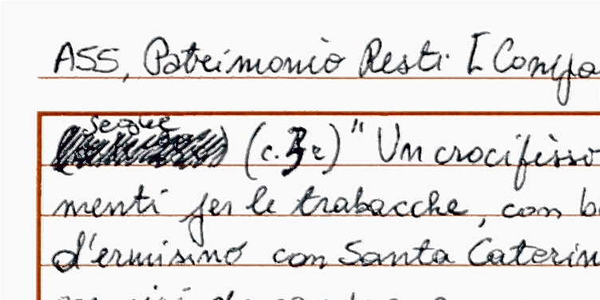 ASS, Patrimonio Resti [Compa
segue
(c. 3r) "Un crocifisso
menti per le trabacche, con b
d'ermisino con Santa Caterin